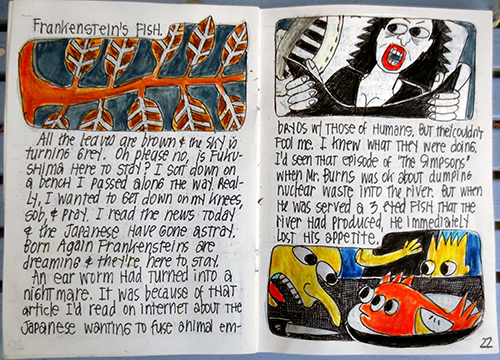 Frankenstein's Fish.
All the leaves are brown & the sky is
turning grey. Oh please no, is Fuku-
shima here to stay? I sat down on
a bench I passed along the way. Real-
ly, I wanted to get down on my knees,
sob, & pray. I read the news today
& the Japanese have gone astray.
Born Again Frankensteins are
dreaming & they're, here to stay.
An ear worm had turned into a
nightmare. It was because of that
article I'd read on internet about the
Japanese wanting to fuse animal em-
bryos w/ those of humans, but they couldn't
fool me. I knew what they were doing.
I'd seen that episode of "The Simpsons"
when Mr. Burns was ok about dumping
nuclear waste into the river. But when
he was served a 3 eyed fish that the
river had produced, he immediately
lost his appetite.
22